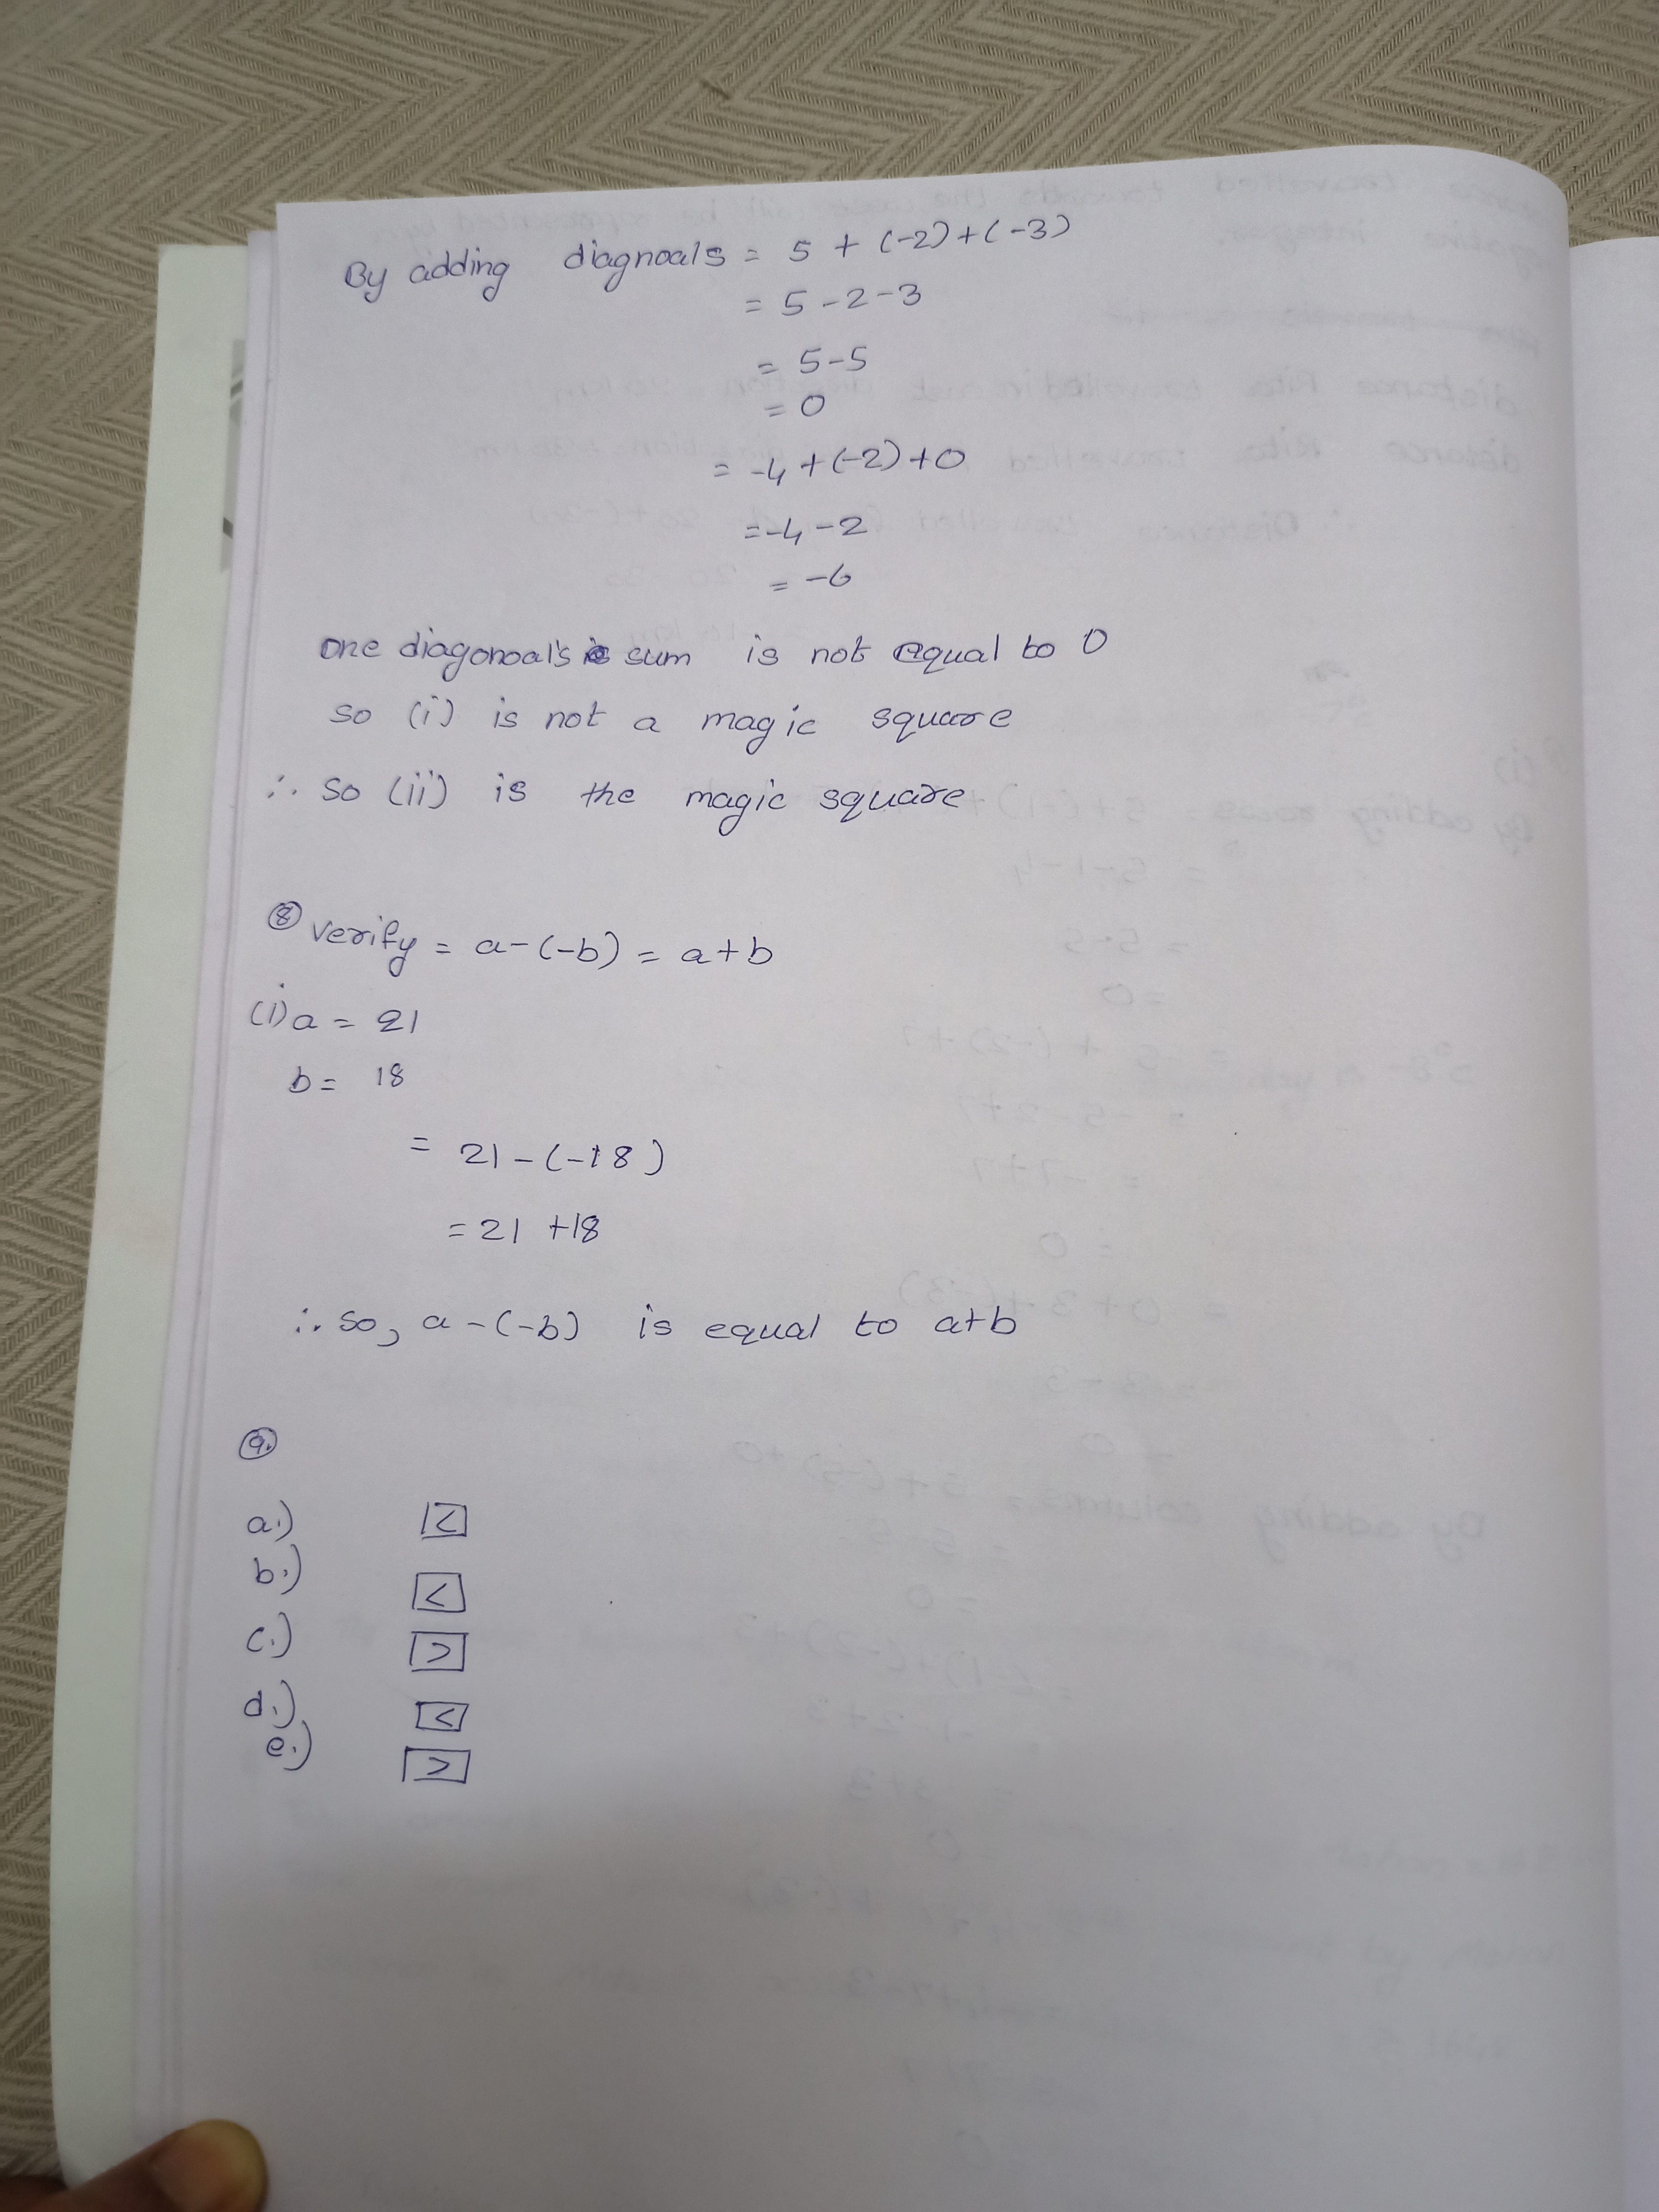 By adding diagnoals = 5 + (-2)+(-3)
= 5 -2-3
= 5-5
= 0
= -4+(-2)+0
=-4-2
= -6
one diagonoal's sum is not equal to 0
so (i) is not a magic square
∴ so (ii) is the magic square
⑧ verify = a-(-b) = a+b
(i) a = 21
b = 18
= 21-(-18)
= 21 +18
∴ so, a-(-b) is equal to a+b
⑨.
a.) <
b.) <
c.) >
d.) <
e.) >